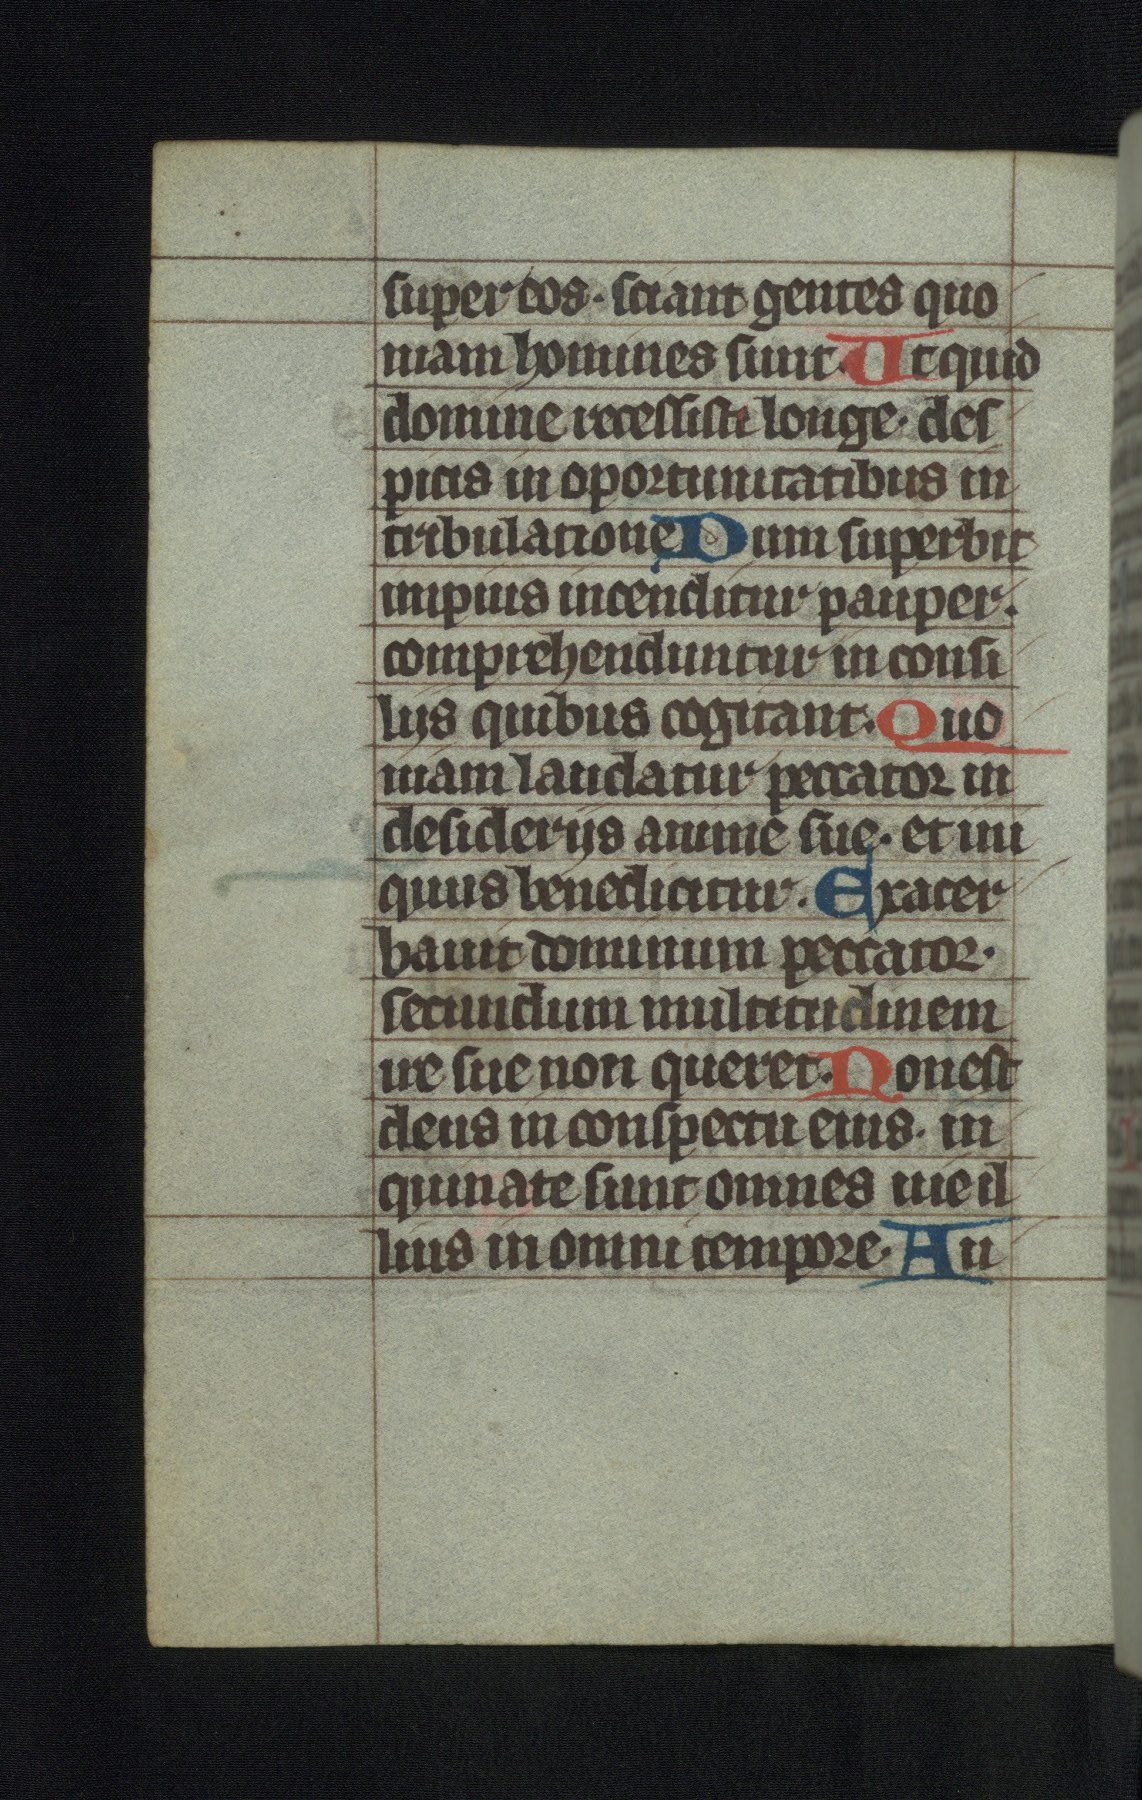 super eos. sciant gentes quo
niam homines sunt. Ut quid
domine recessisti longe. des
picis in oportunitatibus in
tribulatione Dum superbit
impius incenditur pauper.
comprehenduntur in consi
lijs quibus cogitant. Quo
niam laudatur peccator in
desiderijs anime sue. et ini
quus benedicitur. Exacer
bauit dominum peccator.
secundum multitudinem
ire sue non queret. Non est
deus in conspectu eius. in
quinate sunt omnes uie il
lius in omni tempore. Au